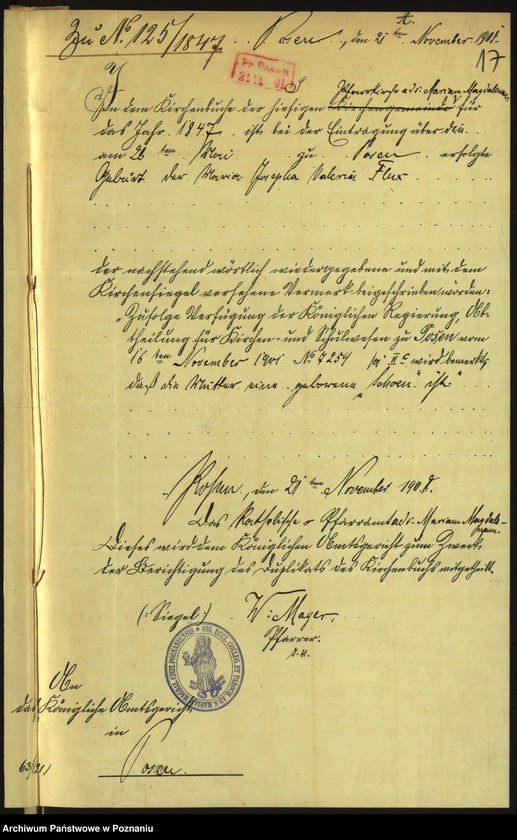 Zu No 125/1847. Posen, den 21 ten November 1901.
17
In dem Kirchenbuche der hiesigen Kirchengemeinde Pfarrkirche ad s. Mariam Magdalenam für
das Jahr 1847 ist bei der Eintragung über die
am 26 ten Mai zu Posen erfolgte
Geburt der Maria Josepha Valeria Flux
der nachstehend wörtlich wiedergegebene und mit dem
Kirchensiegel versehene Vermerk beigeschrieben worden:
"Zufolge Verfügung der Königlichen Regierung, Ab-
theilung für Kirchen- und Schulwesen zu Posen vom
16 ten November 1901 No 7254 IIc wird bemerkt,
daß die Mutter eine geborene "Schoen" ist"
Posen, den 21 ten November 1901.
Das Katholische Pfarramt ad s. Mariam Magdale-
nam.
Dieses wird dem Königlichen Amtsgericht zum Zweck
der Berichtigung des Duplikats des Kirchenbuchs mitgetheilt.
(: Siegel :) W. Mayer,
Pfarrer.
An
das Königliche Amtsgericht
in
Posen.
Archiwum Państwowe w Poznaniu
www.szukajwarchiwach.gov.pl